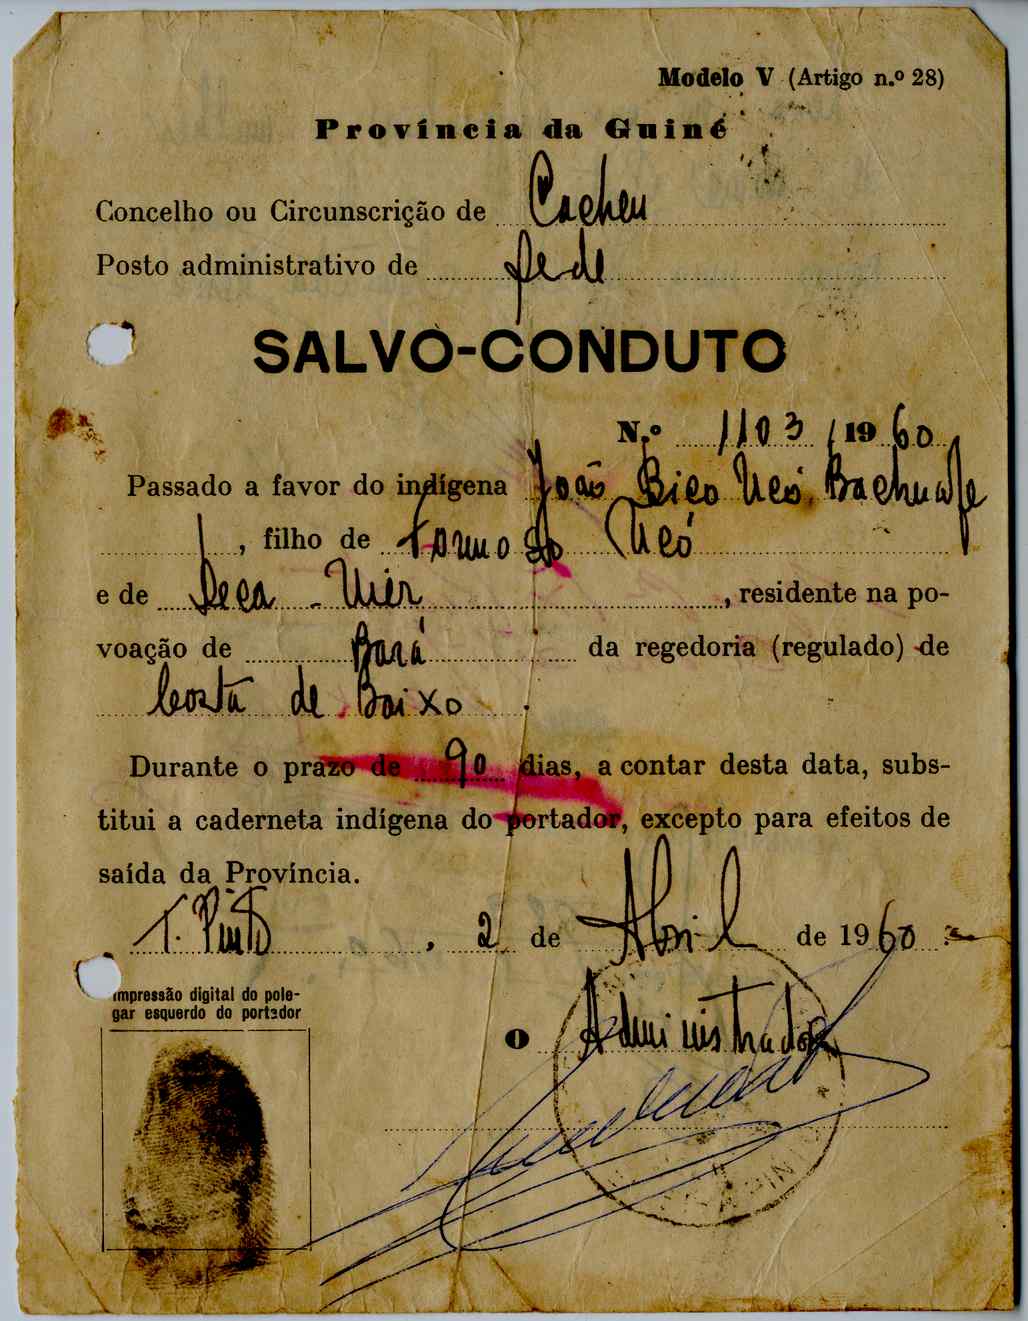 Modelo V (Artigo n.º 28)
Província da Guiné
Concelho ou Circunscrição de Cacheu
Posto administrativo de Sede
SALVO-CONDUTO
N.º 1103/1960
Passado a favor do indígena João Bico Ucó, Bachua
, filho de Ucó
e de Seca - , residente na po-
voação de Bará da regedoria (regulado) de
Costa de Baixo.
Durante o prazo de 90 dias, a contar desta data, subs-
titui a caderneta indígena do portador, excepto para efeitos de
saída da Província.
T. Pinto, 2 de Abril de 1960
Impressão digital do pole-
gar esquerdo do portador
O Administrador